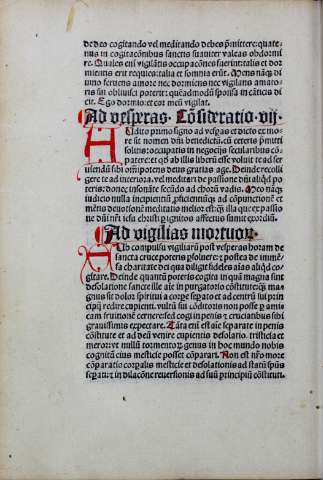 de deo cogitando vel meditando debes p̄mittere: quate-
nus in cogitacōnibus sanctis suauiter valeas obdormi-
re. Quales em̄ vigilātis occupacōnes fuerint: talis et dor-
mientis erit requies: talia et somnia erūt. Mens
uino feruens amore nec dormiens nec vigilans amato-
ris sui obliuisci poterit: quēadmodū sponsa in cāticis di-
cit. Ego dormio: et cor meū vigilat.
Ad vesperas. Cōsideratio .vij.
Audito primo signo ad vesp̄as et dicto ex mo-
re sit nomen dn̄i benedictū. cū ceteris
solitis: occupatis in negocijs secularibus
pater: et ab illis liberū esse voluit te ad ser-
uiendū sibi om̄ipotens deus gratias age. Deinde recolli-
gere te ad interiora. vel meditare de passione dn̄i aliqd̄ po-
teris: donec insonāte secūdo ad chorū vadis.
iudicio nulla incipientiū ꝓficientiuqꝫ ad cōpunctionē et
mētis deuotionē meditatio melior est: illa que ex passio-
ne dn̄i nr̄i iesu christi p̄ignitos affectus sumit exordiū.
Ad vigilias mortuor.
Ab compulsu vigiliarū post vesperas horam de
sancta cruce poteris ꝑsoluere: postea de immē-
sa charitate dei qua diligit fideles aīas co-
gitare. Deinde quantū poteris cogita in quā magna sint
desolatione sancte ille aīe in purgatorio cōstitute:
gnus sit dolor spiritui a corpe separato et ad centrū sui prin-
cipij redire cupienti. vultū sui cōditoris non posse
cam fruitionē cernere: sed cogi in penis et cruciatibus sibi
grauissimis expectare. Tāta em̄ est aīe separate in penis
cōstitute et ad deū venire cupientis desolatio. tristicia et
meror: vt nulli tormentorꝫ genus in hoc mundo nobis
cognitū eius mesticie possit cōparari. Non est nr̄o more
cōparatio corpalis mesticie et desolationis ad statū spūs
sepatu: et in dilacōne reuersionis ad suū principiū cōstituti.